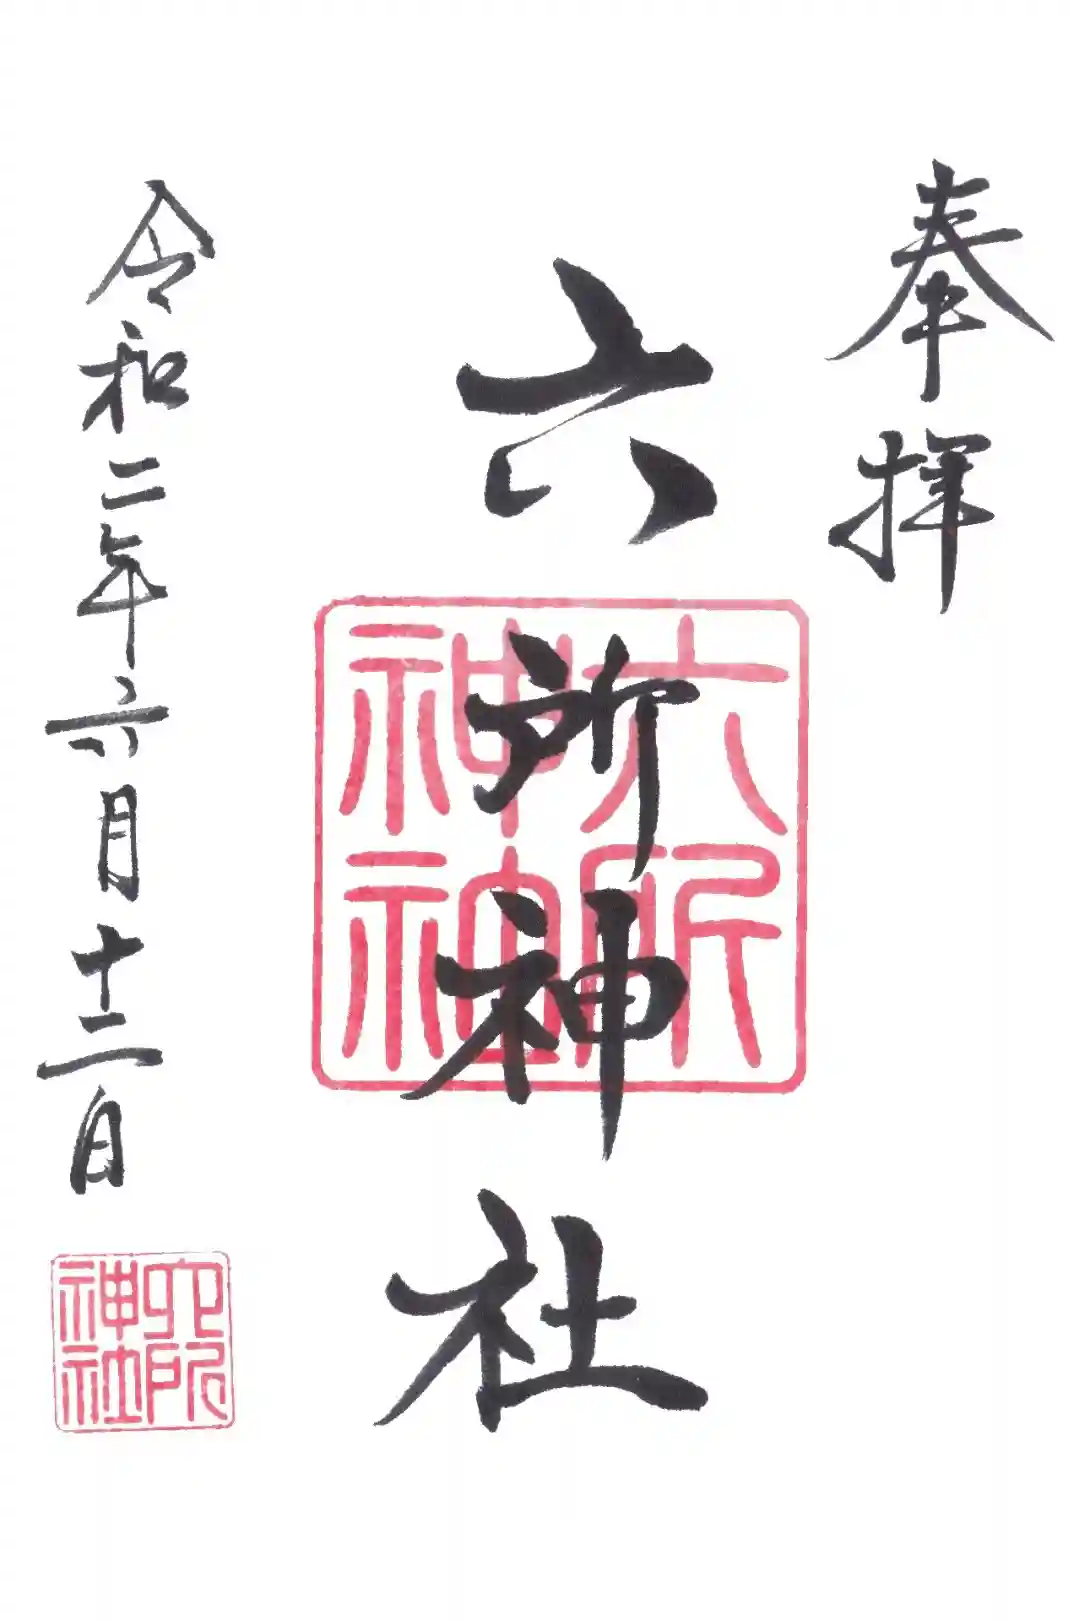 奉拝
六所神社
六所神社
令和二年六月十二日
六所神社